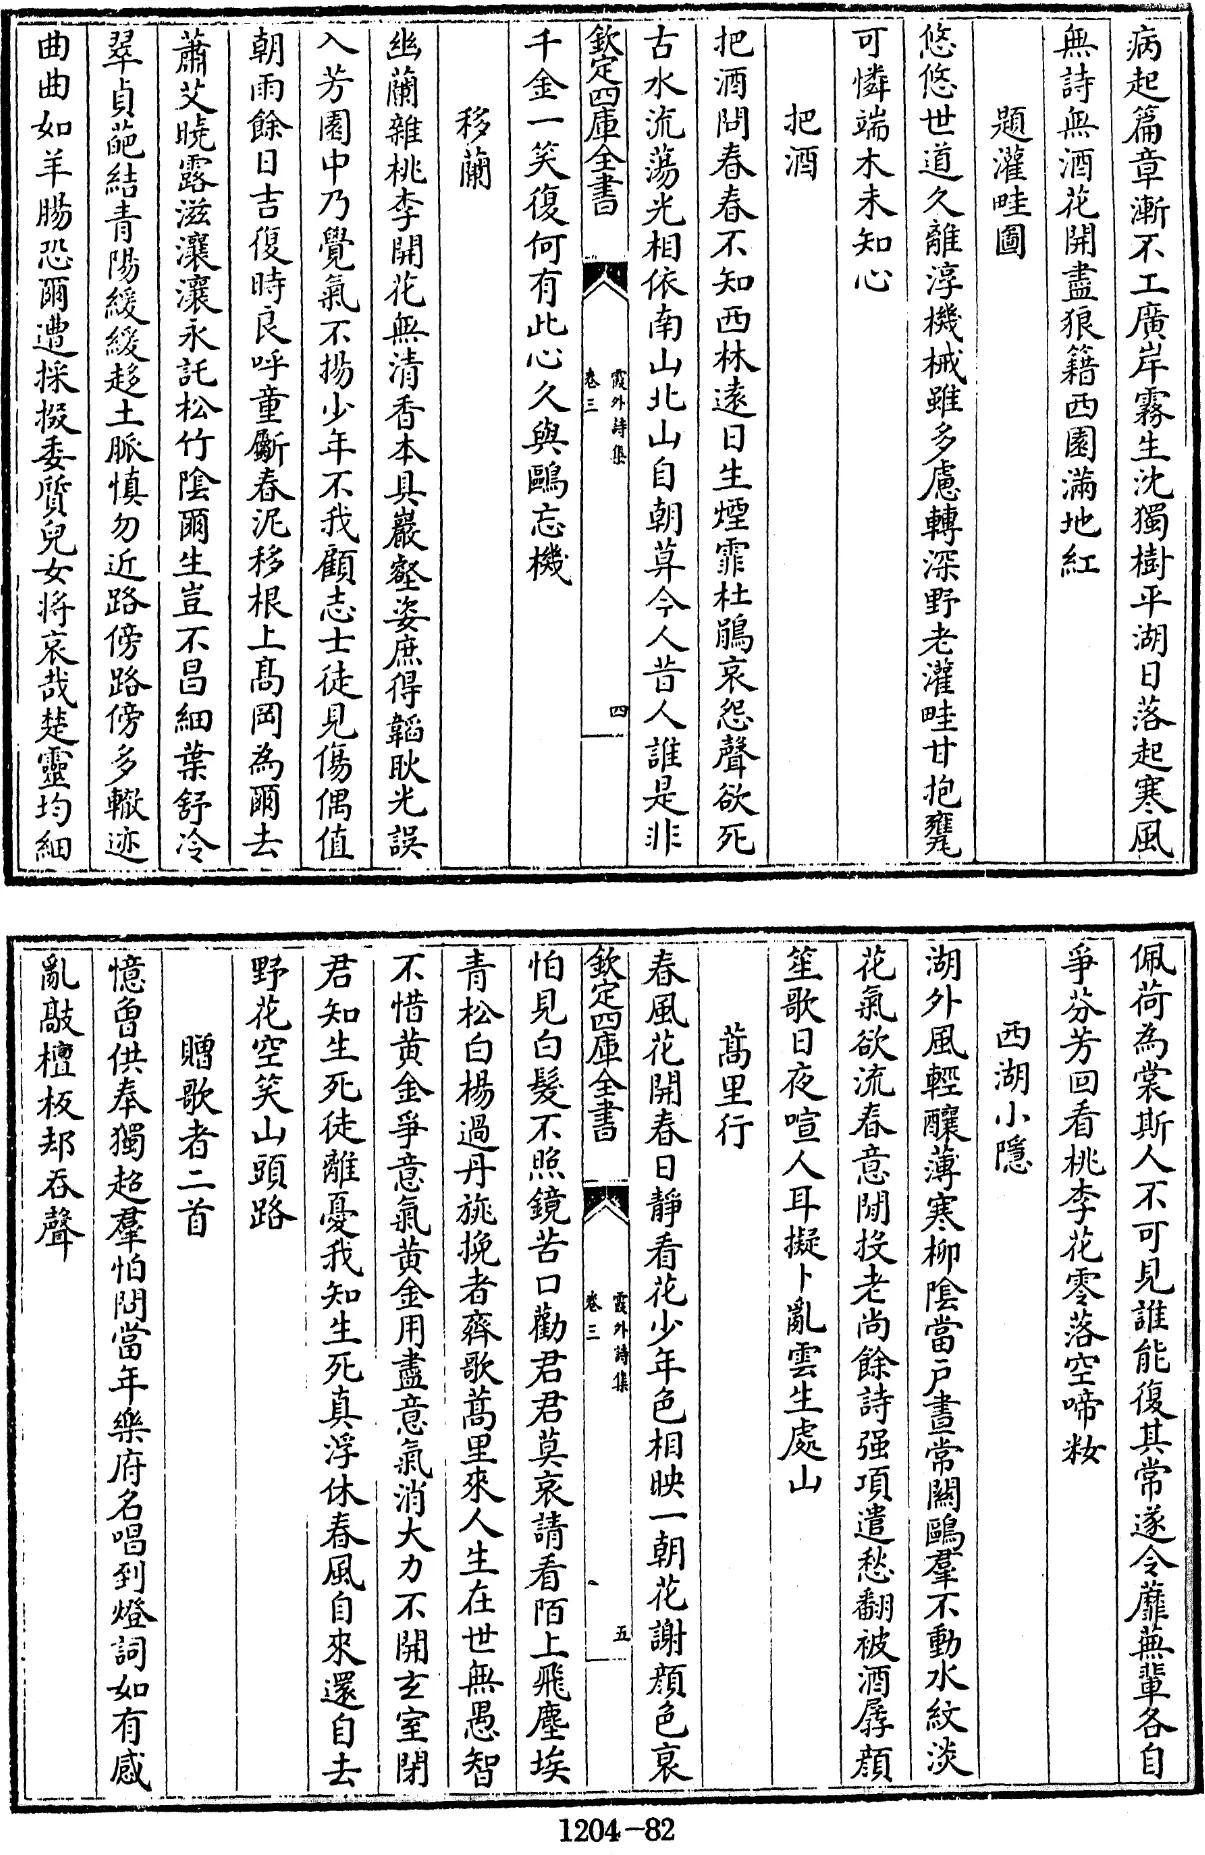 病起篇章漸不工廣岸霧生沈獨樹平湖日落起寒風
無詩無酒花開盡狼籍西園滿地紅
題灌畦圖
悠悠世道久離淳機械雖多慮轉深野老灌畦甘抱甕
可憐端木未知心
把酒
把酒問春春不知西林遠日生煙霏杜鵑哀怨聲欲死
古水流蕩光相依南山北山自朝莫今人昔人誰是非
欽定四庫全書
霞外詩集
卷三
四
千金一笑復何有此心久與鷗忘機
移蘭
幽蘭雜桃李開花無清香本具巖壑姿庶得韜耿光誤
入芳園中乃覺氣不揚少年不我顧志士徒見傷偶值
朝雨餘日吉復時良呼童斸春泥移根上髙岡為爾去
蕭艾曉露滋瀼瀼永託松竹隂爾生豈不昌細葉舒冷
翠貞葩結青陽緩緩趍土脈慎勿近路傍路傍多轍迹
曲曲如羊腸恐爾遭採掇委質兒女將哀哉楚靈均細
佩荷為裳斯人不可見誰能復其常遂令蘼蕪輩各自
爭芬芳回看桃李花零落空啼粧
西湖小隱
湖外風輕釀薄寒栁隂當户晝常闗鷗羣不動水紋淡
花氣欲流春意閒投老尚餘詩强項遣愁翻被酒孱顔
笙歌日夜喧人耳擬卜亂雲生處山
蒿里行
春風花開春日靜看花少年色相映一朝花謝顔色哀
欽定四庫全書
霞外詩集
卷三
五
怕見白髮不照鏡苦口勸君君莫哀請看陌上飛塵埃
青松白楊過丹旐挽者齊歌蒿里來人生在世無愚智
不惜黄金爭意氣黄金用盡意氣消大力不開玄室閉
君知生死徒離憂我知生死真浮休春風自來還自去
野花空笑山頭路
贈歌者二首
憶曽供奉獨超羣怕問當年樂府名唱到燈詞如有感
亂敲檀板却吞聲
1204-82